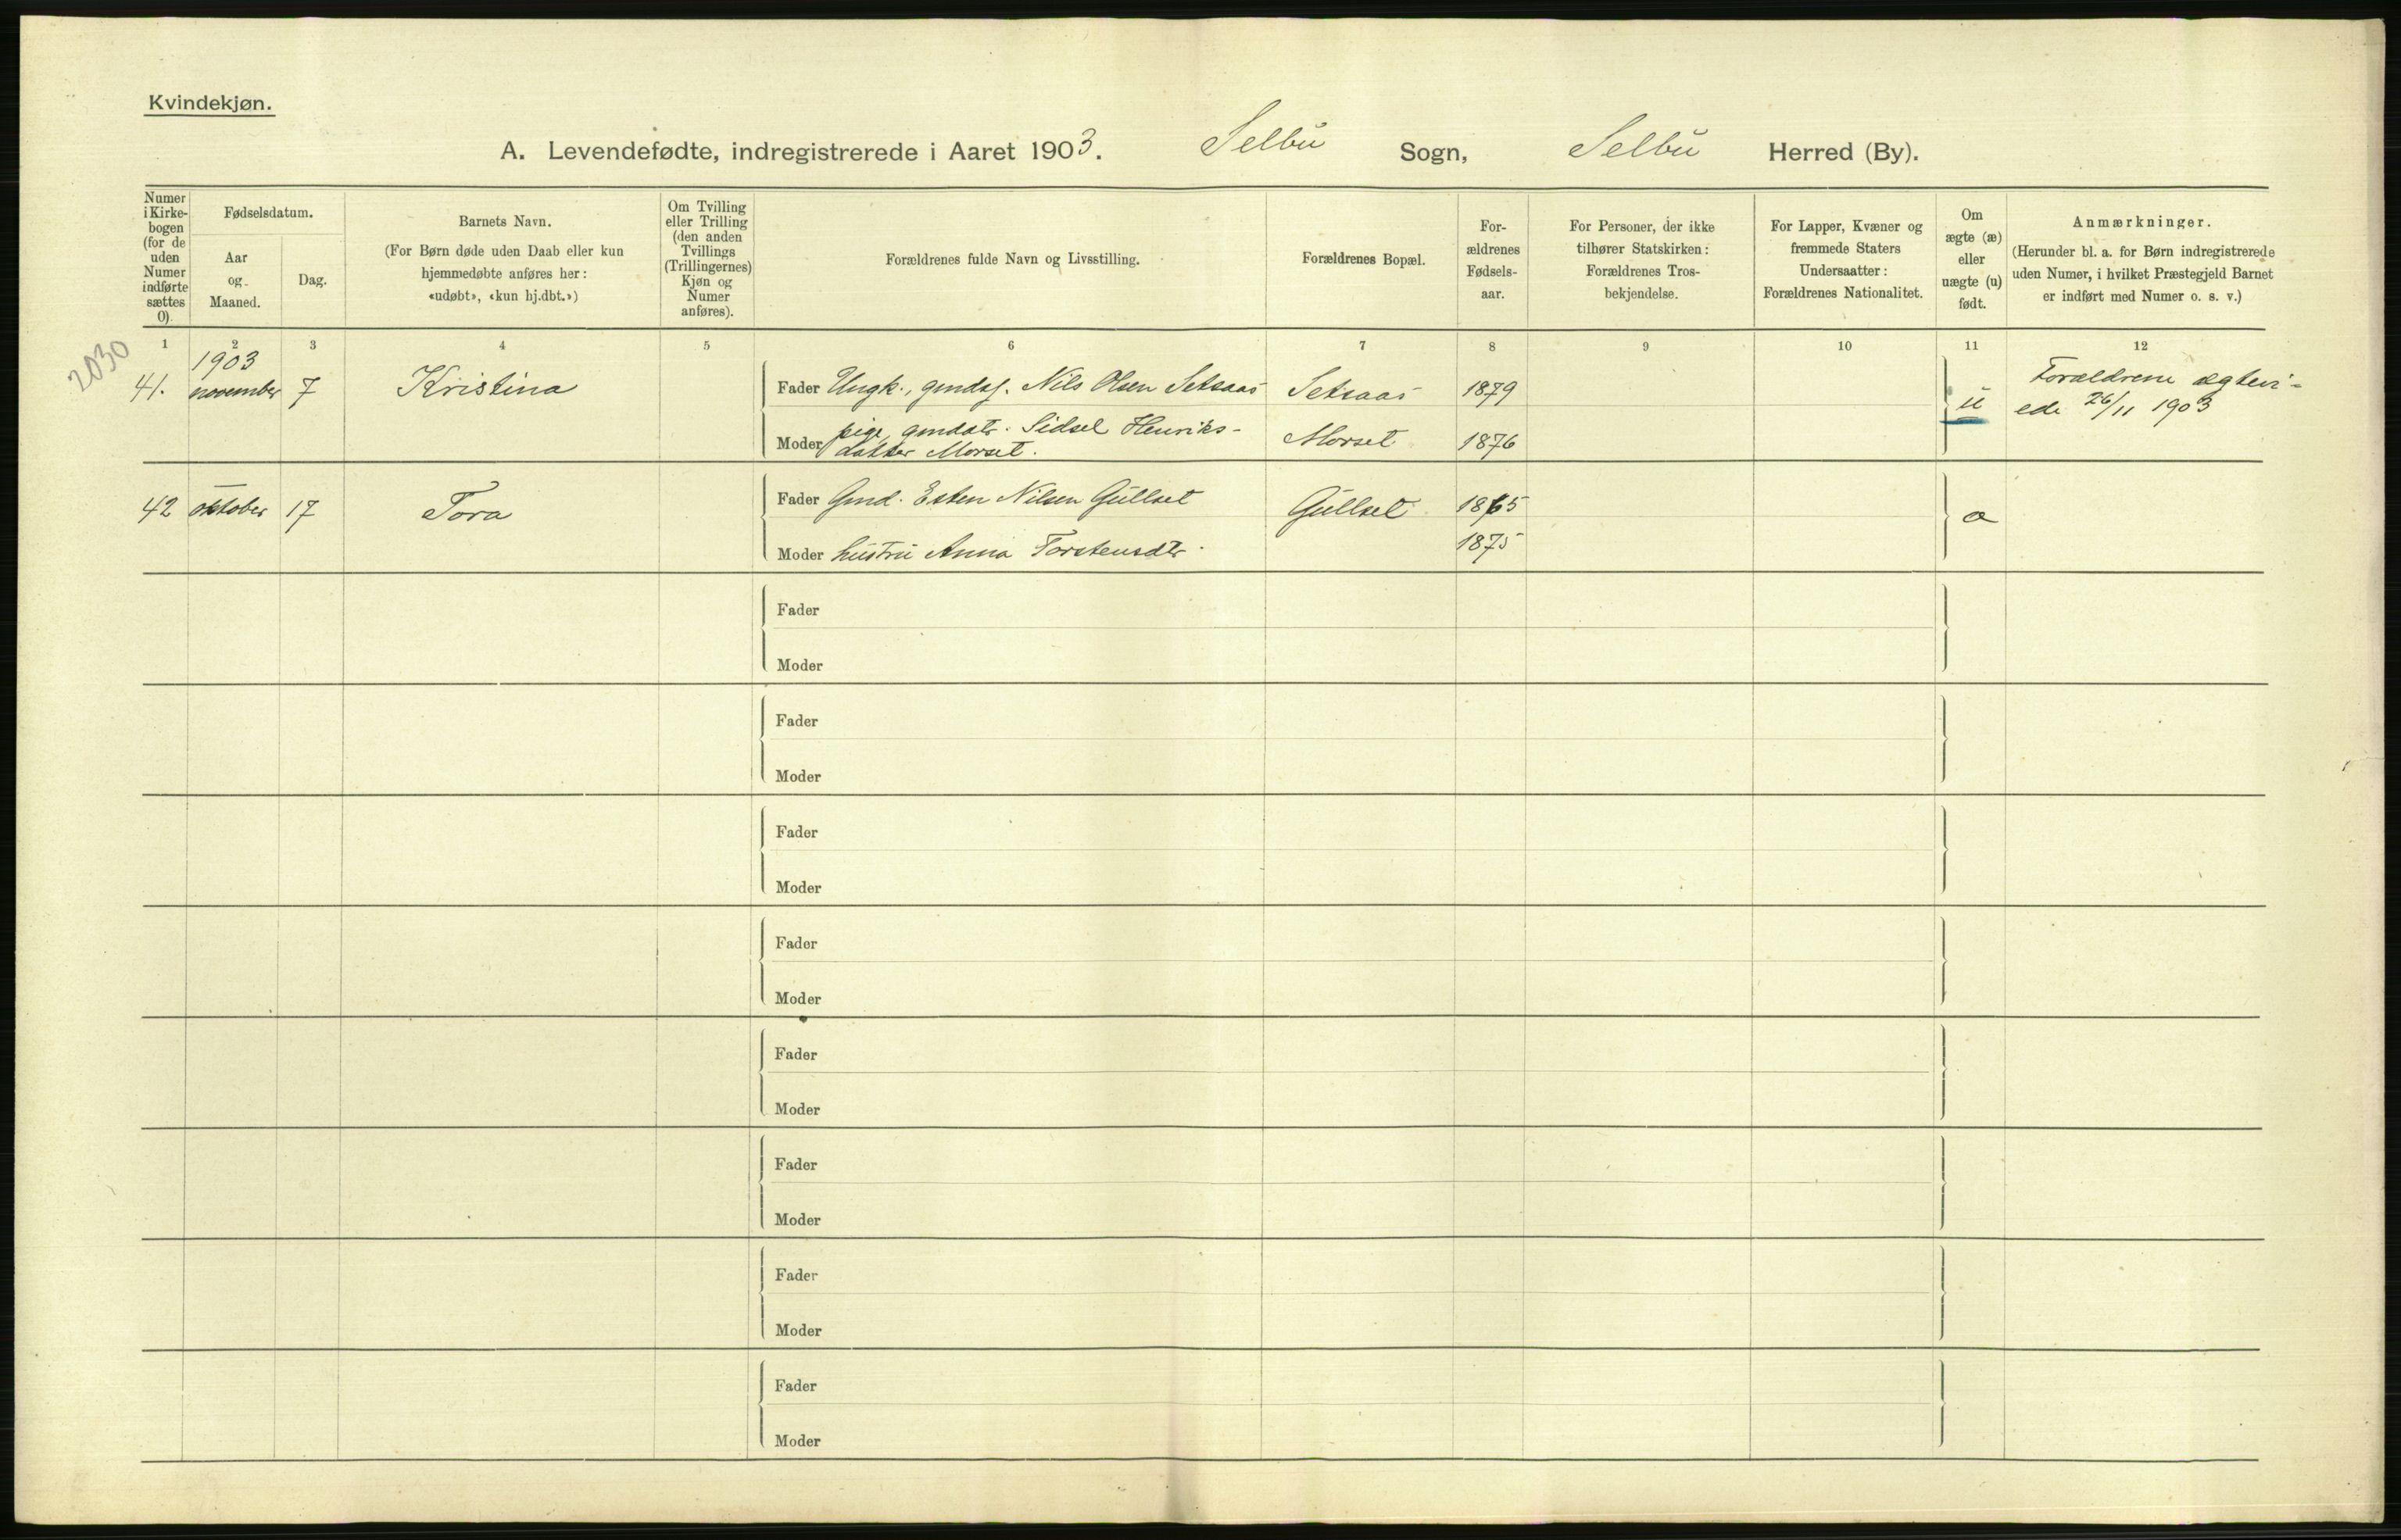 Kvindekjøn.
A. Levendefødte, indregistrerede i Aaret 1903. Selbu Sogn, Selbu Herred (By).
Numer i Kirkebogen (for de uden Numer indførte sættes 0).
Fødselsdatum.
Aar og Maaned.
Dag.
Barnets Navn.
(For Børn døde uden Daab eller kun
hjemmedøbte anføres her:
«udøbt», «kun hj.dbt.»)
Om Tvilling
eller Trilling
(den anden
Tvillings
(Trillingernes)
Kjøn og
Numer
anføres).
Forældrenes fulde Navn og Livsstilling.
Forældrenes Bopæl.
For-
ældrenes
Fødsels-
aar.
For Personer, der ikke
tilhører Statskirken:
Forældrenes Tros-
bekjendelse.
For Lapper, Kvæner og
fremmede Staters
Undersaatter:
Forældrenes Nationalitet.
Om
ægte (æ)
eller
uægte (u)
født.
Anmærkninger.
(Herunder bl. a. for Børn indregistrerede
uden Numer, i hvilket Præstegjeld Barnet
er indført med Numer o. s. v.)
1 2 3 4 5 6 7 8 9 10 11 12
2030
1903
41. november 7 Kristina Fader Ungk., gmdsf. Nils Olsen Setsaas Setsaas 1879 u Forældrene ægtevi-
ede 26/11 1903
Moder pige, gmdatr. Sidsel Henriks-
datter Morset. Morset 1876
42 oktober 17 Tora Fader Gmd. Esten Nilsen Gullset Gullset 1865 æ
Moder hustru Anna Torstensdtr. 1875
Fader
Moder
Fader
Moder
Fader
Moder
Fader
Moder
Fader
Moder
Fader
Moder
Fader
Moder
Fader
Moder